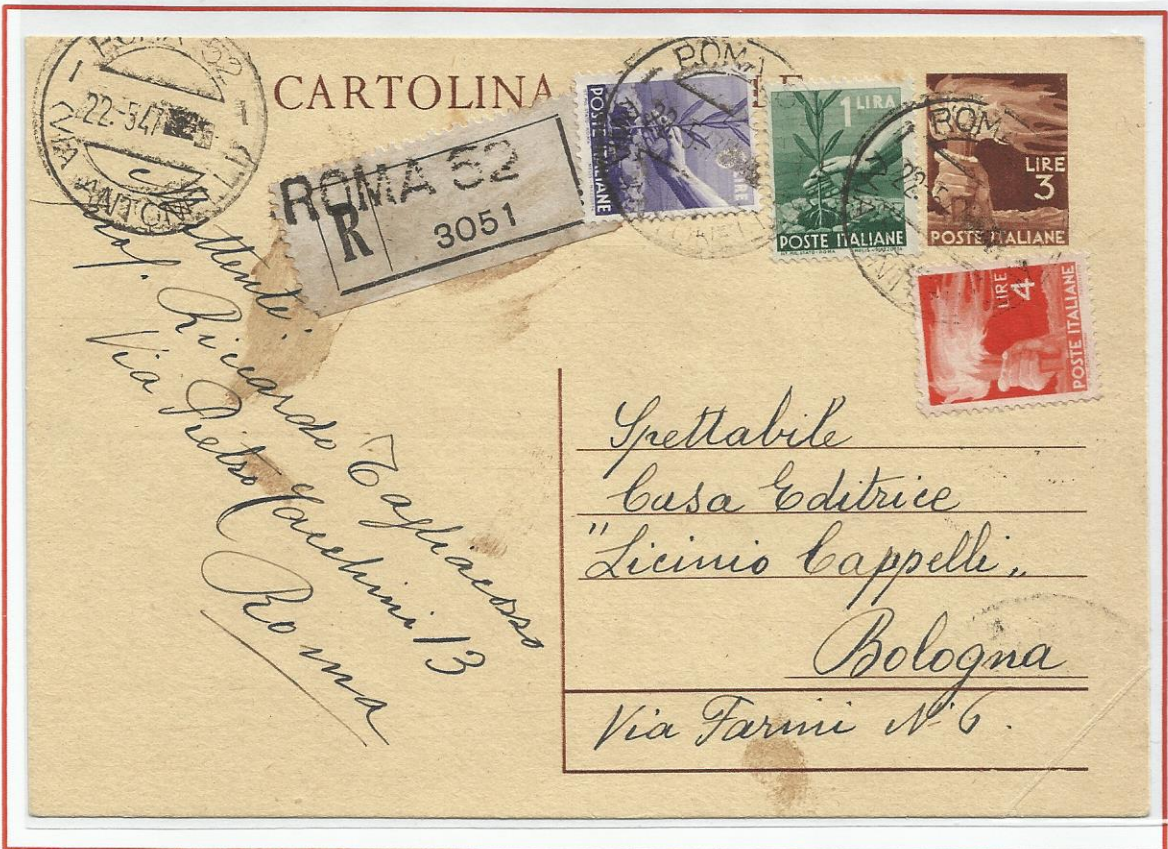 ROMA 52
22-5.47
VIA ANTONELLI
CARTOLINA
ROMA 52
R
3051
POSTE ITALIANE
LIRE
ROMA
1 LIRA
POSTE ITALIANE
ROMA
22.5
LIRE
3
POSTE ITALIANE
LIRE 4
POSTE ITALIANE
Riccardo Tagliacozzo
Via Pietro 13
Roma
Spettabile
Casa Editrice
"Licinio Cappelli„
Bologna
Via Farini N. 6.